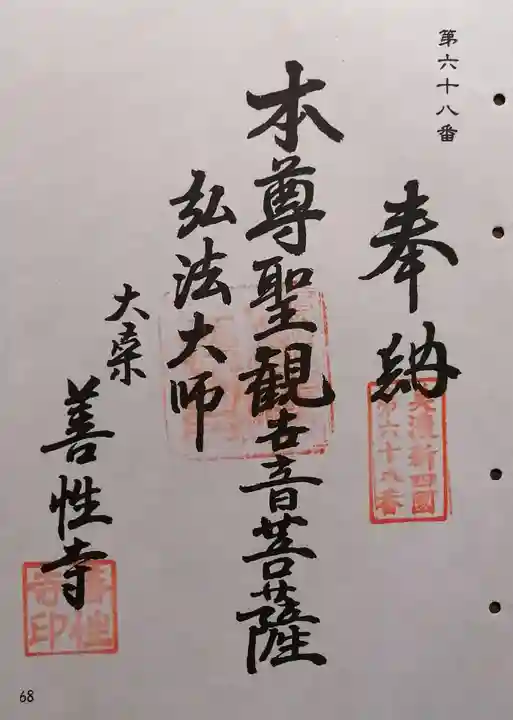 第六十八番
奉納
美濃新四國
第六十八番
本尊聖観世音菩薩
弘法大師
大桒
善性寺
善性
寺印
68